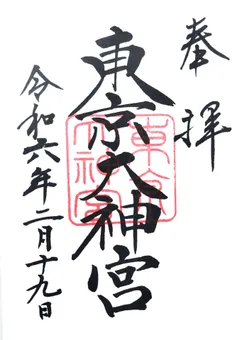 奉拝
東京大神宮
東京大神宮
令和六年二月十九日